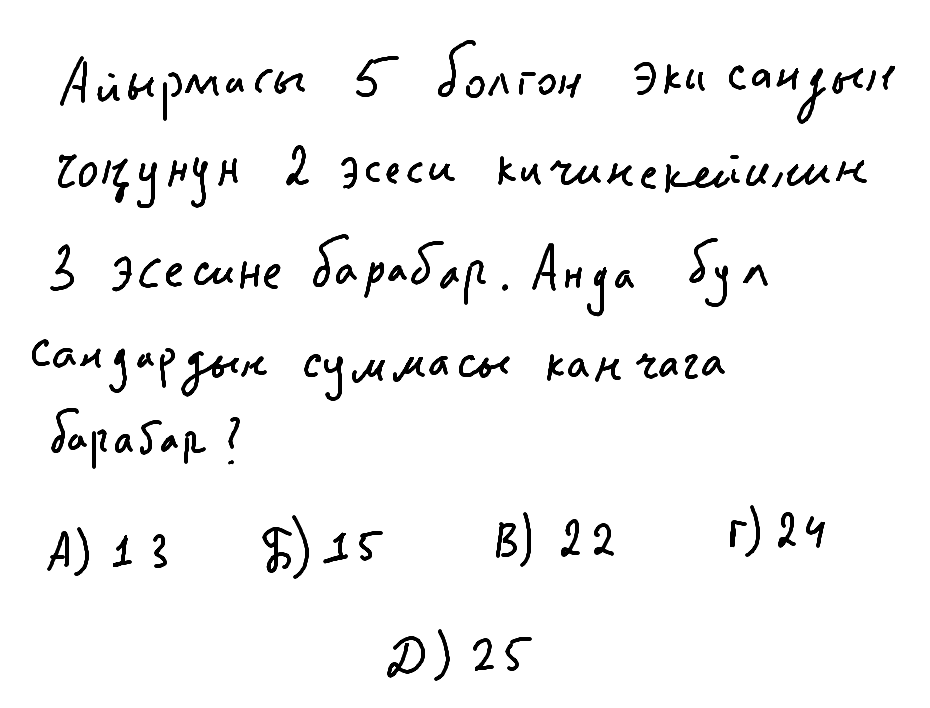 Айырмасы 5 болгон эки сандын
чоңунун 2 эсеси кичинекейинин
3 эсесине барабар. Анда бул
сандардын суммасы канчага
барабар?
А) 13 Б) 15 В) 22 Г) 24
Д) 25